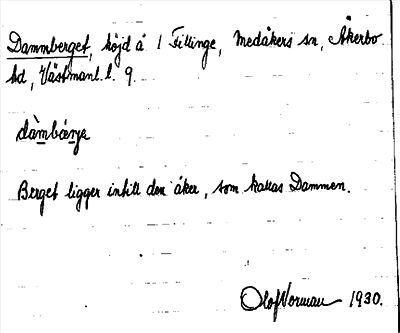 Dammberget, höjd å 1 Tillinge, Medåkers sn, Åkerbo
hd, Västmanl. l. 9.
dàmbærje
Berget ligger intill den åker, som kallas Dammen.
Olof Norman 1930.